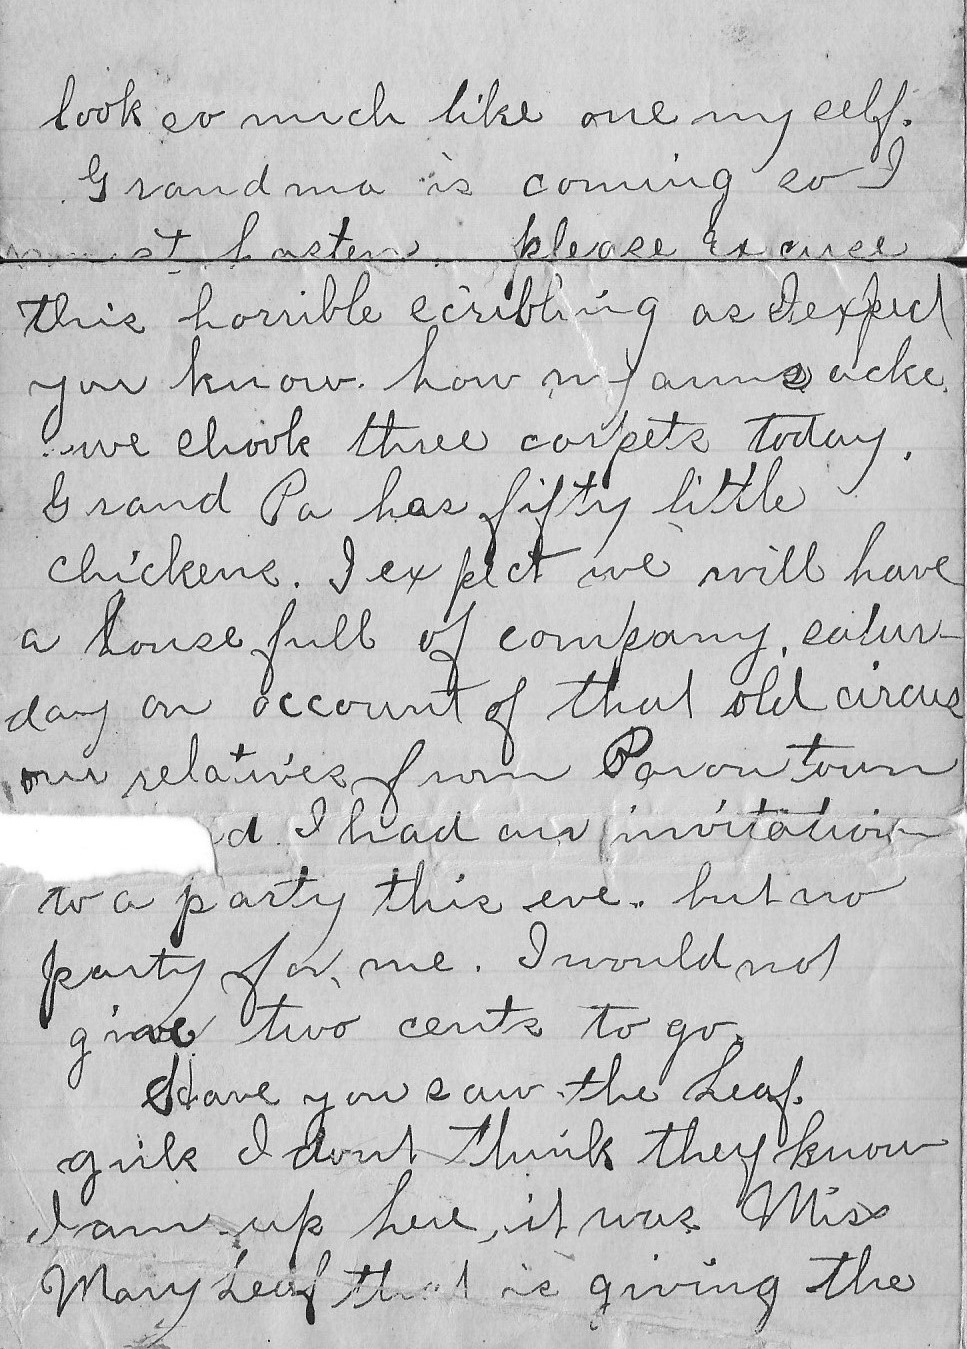 look so much like one my self.
Grandma is coming so I
must hasten. please excuse
this horrible scribbling as I expect
you know. how my arms acke.
we shook three carpets today.
Grand Pa has fifty little
chickens. I expect we will have
a house full of company, satur-
day on account of that old circus
our relatives from town
d. I had an invitation
to a party this eve. but no
party for me. I would not
give two cents to go.
Have you saw the Leaf.
girls I dont think they know
I am up here, it was Miss
Mary Leaf that is giving the